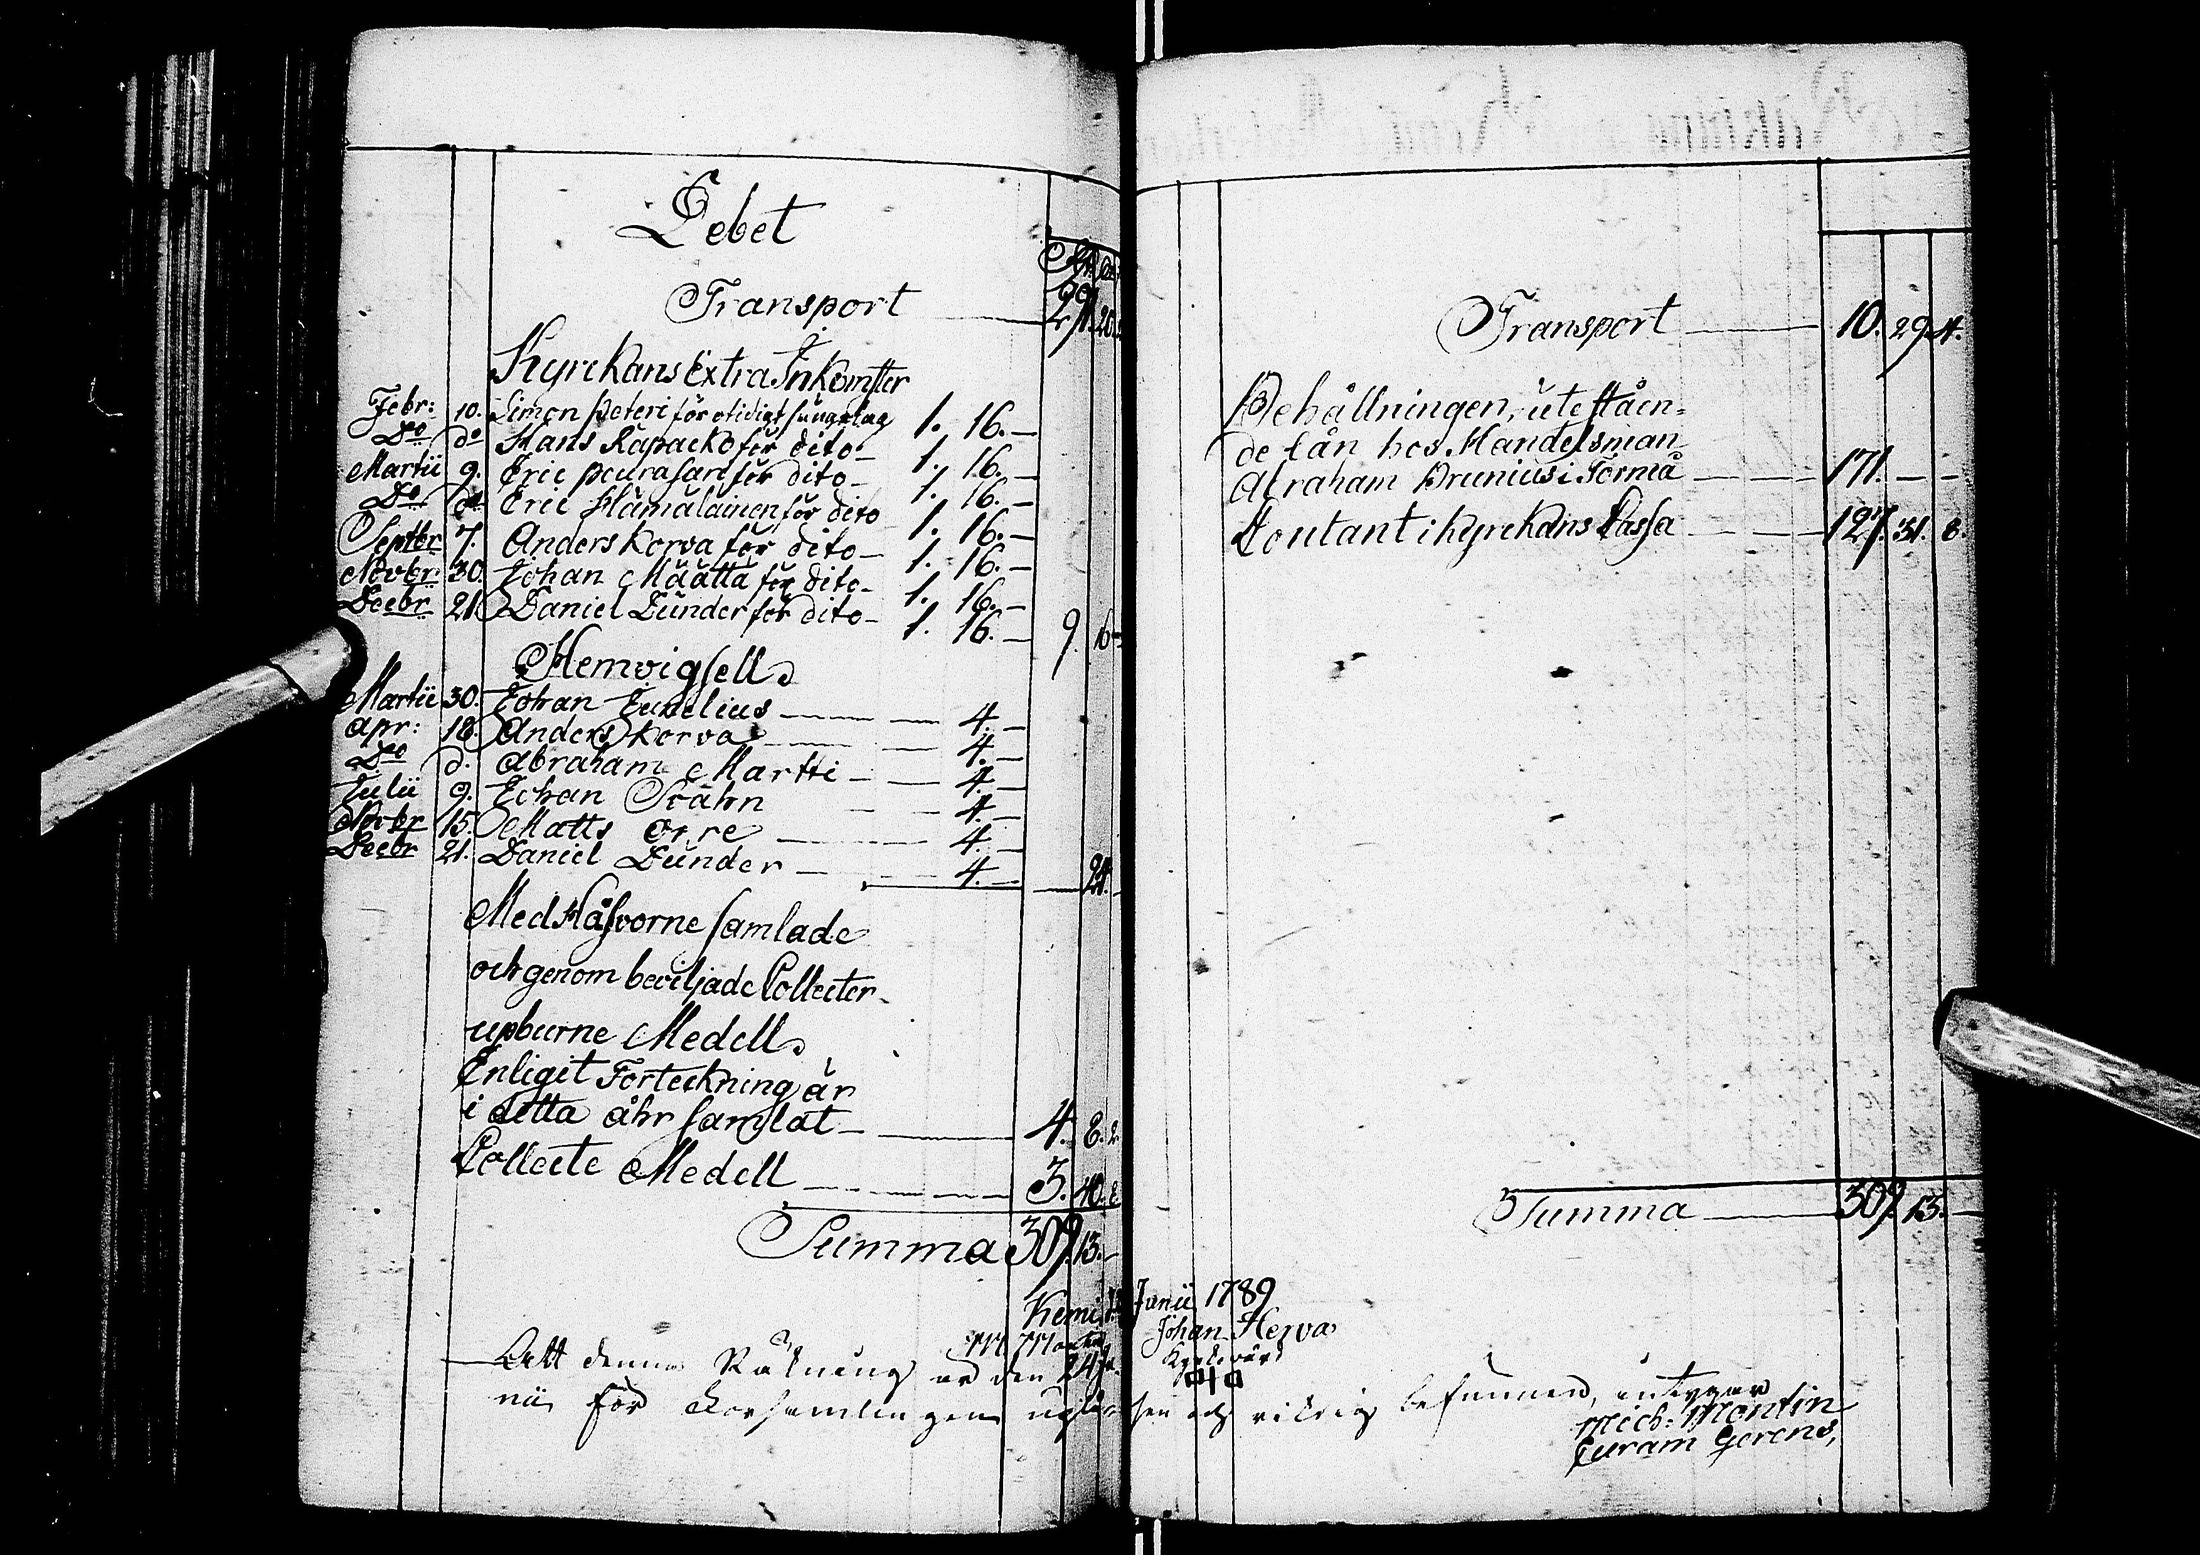 Debet
Transport 291. 20.
Kyrckans Extra Inkomster
Febr: 10. Simon Peteri för otidigt sängelag 1. 16. —
Do do Hans Rapacko för dito — 1. 16. —
Martii 9. Eric Peurasari för dito — 1. 16. —
Do do Eric Hämäläinen för dito 1. 16. —
Septbr 7. Anders Korva för dito — 1. 16. —
Novbr: 30. Johan Määttä för dito — 1. 16. —
Decbr 21 Daniel Dunder för dito — 1. 16. — 9. 16
Hemvigsell.
Martii 30. Johan Junelius — 4. —
Apr: 18. Anders Korva — 4. —
Do d. Abraham Martti — 4. —
Julii 9. Johan Ståhn — 4. —
Novbr 15. Matts Orre — 4. —
Decbr 21. Daniel Dunder — 4. — 24.
Med Håfvorne samlade
och genom beviljade Collecter
upburne Medell.
Enligit Forteckning är
i detta åhr samlat — 4. 8. 2.
Collecte Medell — 3. 40. 8
Summa 309. 13. —
Transport — 10. 29. 4.
Behållningen, uteståen=
de lån hos Handelsman
Abraham Brunius i Torneå — 171. — —
Contant i Kyrckans Cassa — 127. 31. 8.
Summa — 309. 13. —
Kemi Junii 1789
Johan Herva
Kyrkovärd
Att denna Räkning är den 24 Ju
nii för Församlingen upläsen och riktig befunnen, intygar
Mich: Montin
Curam Gerens,